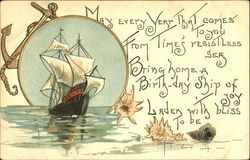 May every Year that comes
to you
From Time's resistless
Sea
Bring home a
Birth-day Ship of
Joy
Laden with bliss
to be